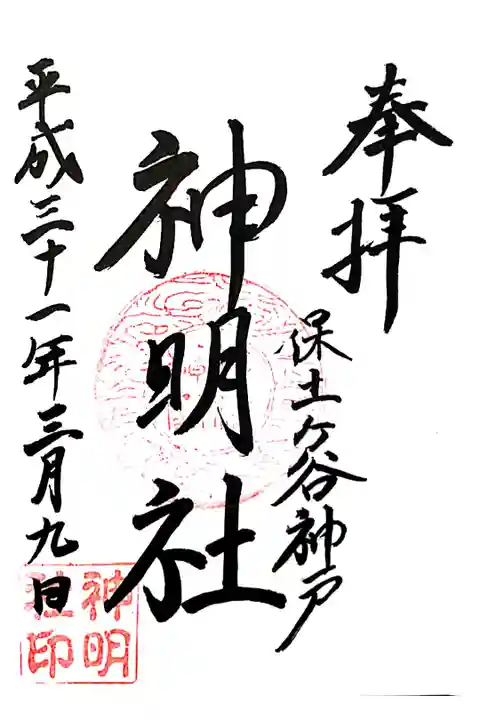 奉拝
保土ヶ谷神戸
神明社
平成三十一年三月九日
神明
社印